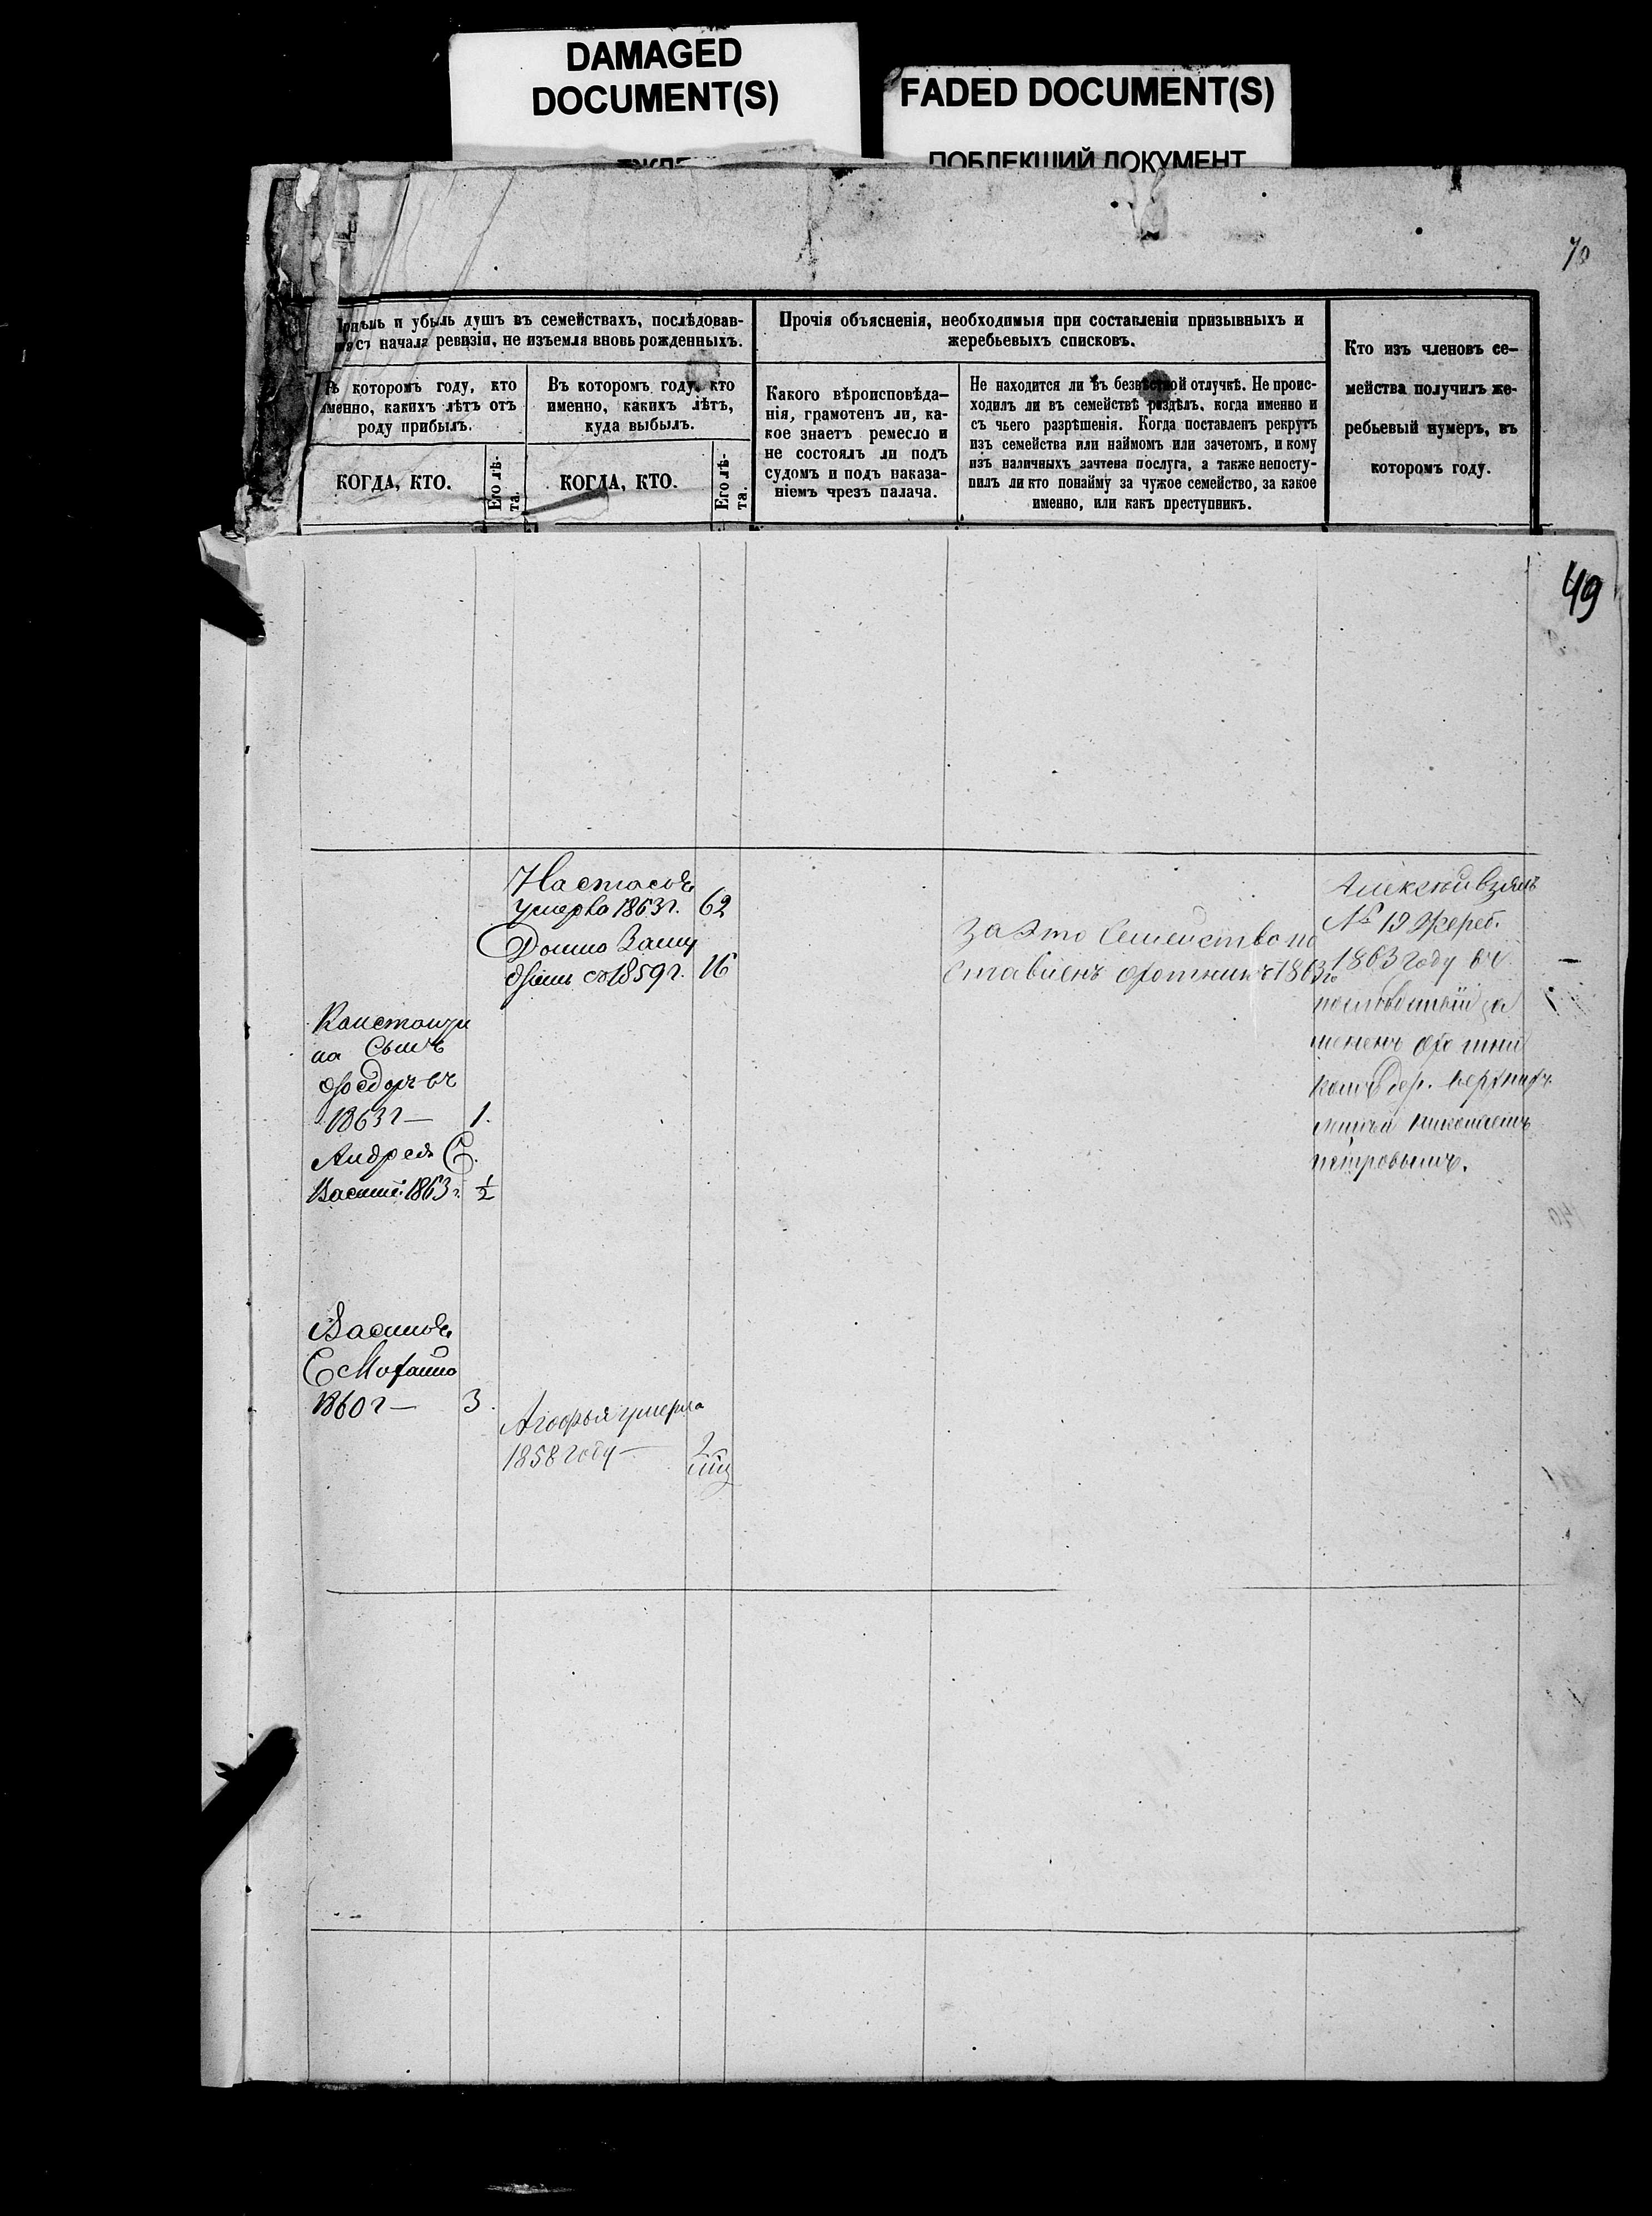 DAMAGED
DOCUMENT(S)
FADED DOCUMENT(S)
ПОБЛЕКШИЙ ДОКУМЕНТ
70
и убыль душъ въ семействахъ, послѣдовав-
начала ревизіи, не изъемля вновь рожденныхъ.
которомъ году, кто
именно, какихъ лѣтъ отъ
роду прибылъ.
КОГДА, КТО.
Его лѣ-
та.
Въ которомъ году, кто
именно, какихъ лѣтъ,
куда выбылъ.
КОГДА, КТО.
Его лѣ-
та.
Прочія объясненія, необходимыя при составленіи призывныхъ и
жеребьевыхъ списковъ.
Какого вѣроисповѣда-
нія, грамотенъ ли, ка-
кое знаетъ ремесло и
не состоялъ ли подъ
судомъ и подъ наказа-
ніемъ чрезъ палача.
Не находится ли въ безвѣстной отлучкѣ. Не проис-
ходилъ ли въ семействѣ раздѣлъ, когда именно и
съ чьего разрѣшенія. Когда поставленъ рекрутъ
изъ семейства или наймомъ или зачетомъ, и кому
изъ наличныхъ зачтена послуга, а также непосту-
пилъ ли кто понайму за чужое семейство, за какое
именно, или какъ преступникъ.
Кто изъ членовъ се-
мейства получилъ же-
ребьевый нумеръ, въ
которомъ году.
49
Настасья
умерла 1863 г. 62
Домна Заму
жемъ съ 1859 г. 16
За это семейство по
ставленъ охотникъ 1863 го
Алексѣй взялъ
№ 19 жереб.
1863 году въ
за
мененъ охотни
комъ дер. Верхнихъ
Николаемъ
Петровымъ.
Константи
на Сынъ
Федоръ въ
1863 г — 1.
Андрея С.
Василій 1863 г. ½
Василья
С Михаила
1860 г — 3.
Агафья умерла
1858 году — 2